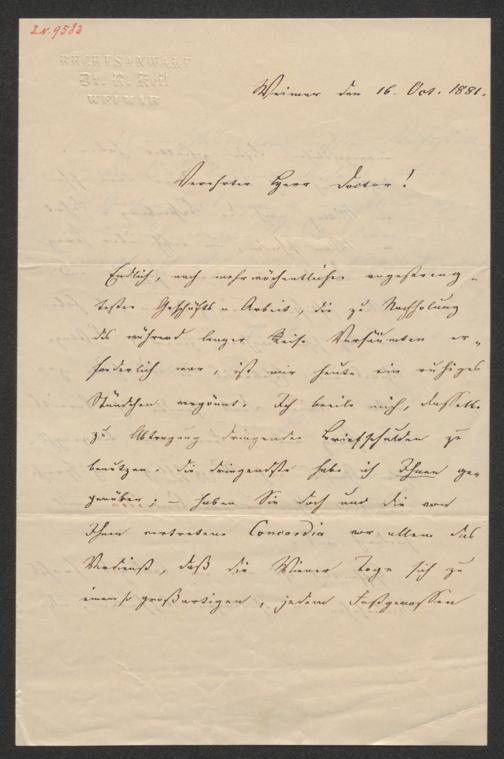 2 N. 9583
RECHTSANWALT
Dr. R. Keil
WEIMAR
Weimar den 16. Oct. 1881.
Verehrter Herr Doctor!
Endlich, nach mehrwöchentlicher angestreng-
tester Geschäfts-Arbeit, die zu Nachholung
des während langer Reise Versäumten er-
forderlich war, ist mir heute ein ruhiges
Stündchen vergönnt. Ich beeile mich, dasselbe
zu Abtragung dringender Briefschulden zu
benutzen. Die dringendste habe ich Ihnen ge-
genüber; – haben Sie doch und die von
Ihnen vertretene Concordia vor allem das
Verdienst, daß die Wiener Tage sich zu
einem so großartigen, jedem Festgenossen